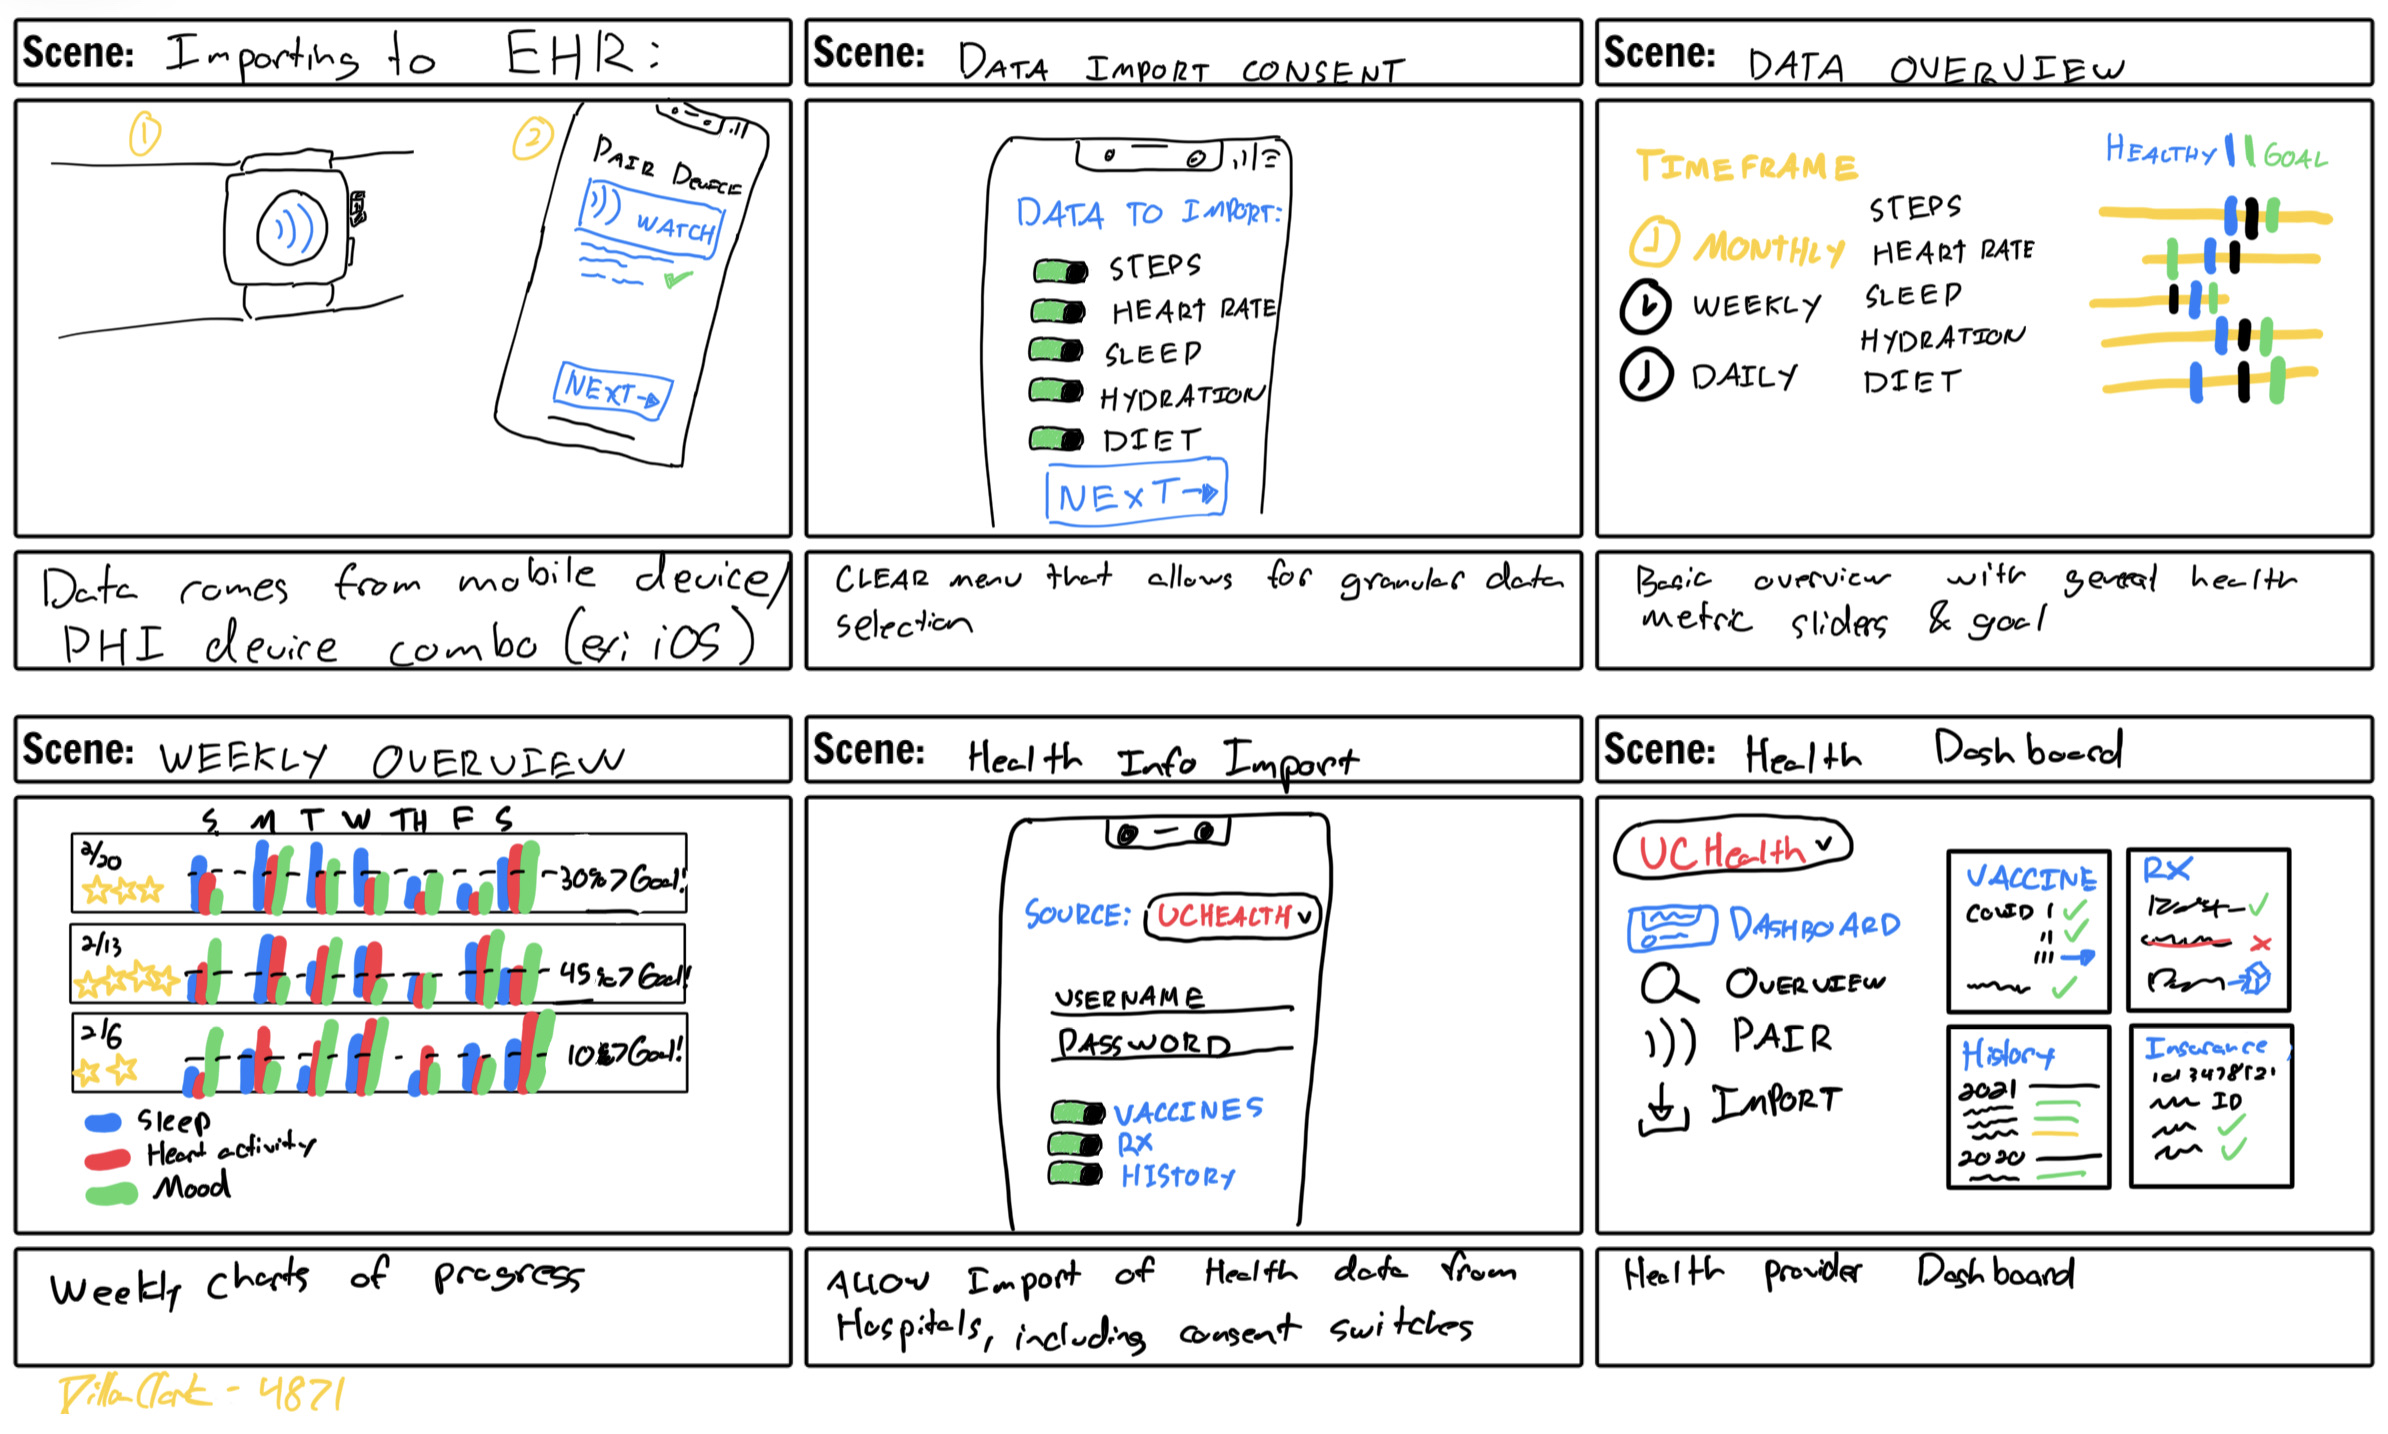 Scene: Importing to EHR:
1
2
PAIR DEVICE
WATCH
NEXT
Data comes from mobile device/
PHI device combo (ex: iOS)
Scene: DATA IMPORT CONSENT
DATA TO IMPORT:
STEPS
HEART RATE
SLEEP
HYDRATION
DIET
NEXT
CLEAR menu that allows for granular data
selection
Scene: DATA OVERVIEW
TIMEFRAME
MONTHLY
WEEKLY
DAILY
STEPS
HEART RATE
SLEEP
HYDRATION
DIET
HEALTHY GOAL
Basic overview with general health
metric sliders & goal
Scene: WEEKLY OVERVIEW
S M T W TH F S
2/20
30% > Goal!
2/13
45% > Goal!
2/6
10% > Goal!
Sleep
Heart activity
Mood
Weekly charts of progress
Scene: Health Info Import
SOURCE: UCHEALTH
USERNAME
PASSWORD
VACCINES
RX
HISTORY
ALLOW Import of Health data from
Hospitals, including consent switches
Scene: Health Dashboard
UCHealth
DASHBOARD
OVERVIEW
PAIR
IMPORT
VACCINE
COVID I
II
III
RX
History
2021
2020
Insurance
ID
Health provider Dashboard
Dillon Clark - 4871